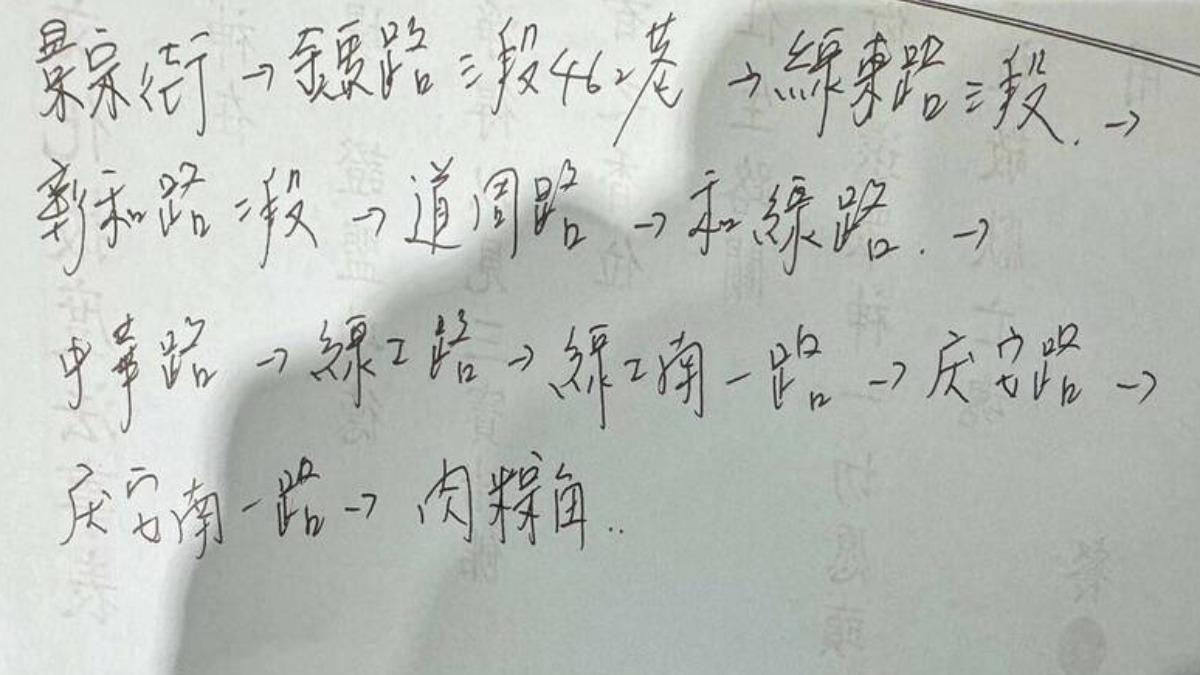 景宗街→彰美路三段462巷→線東路三段.→
彰和路二段→道周路→和線路.→
中華路→線工路→線工南一路→庆安路→
庆安南一路→肉粽角..